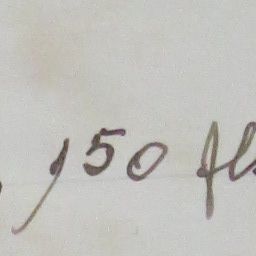 150 fl